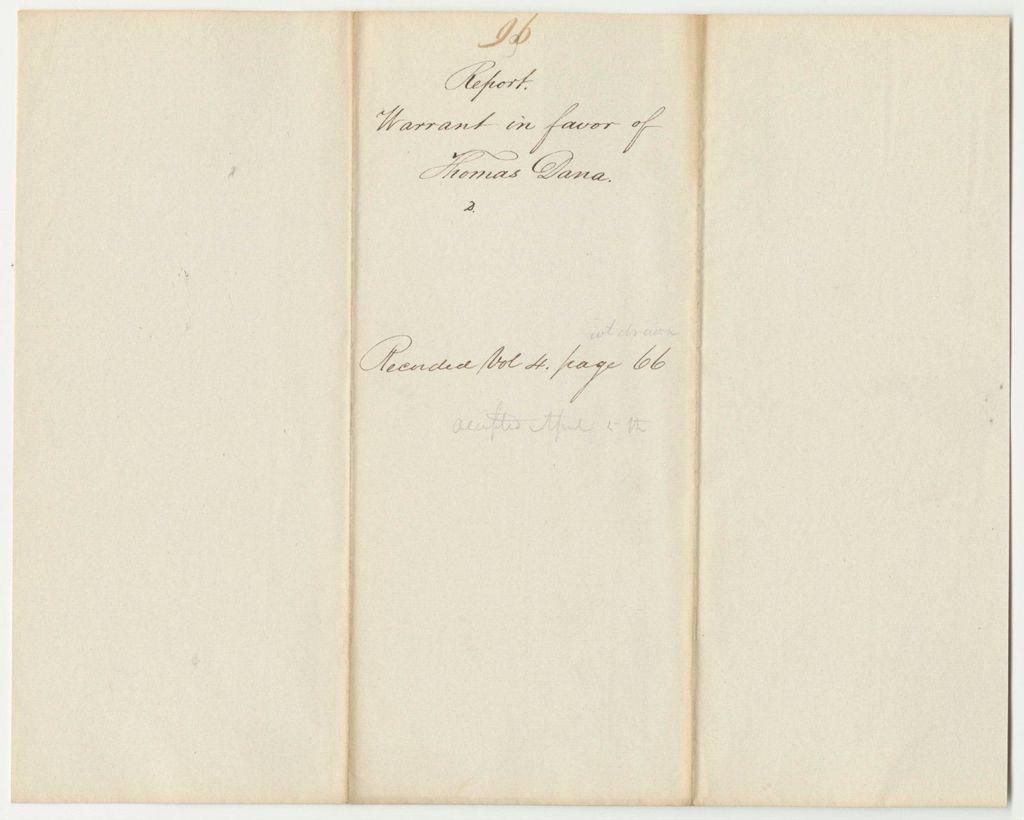 96
Report.
Warrant in favor of
Thomas Dana.
D.
Recorded Vol 4. page 66
accepted April 5th